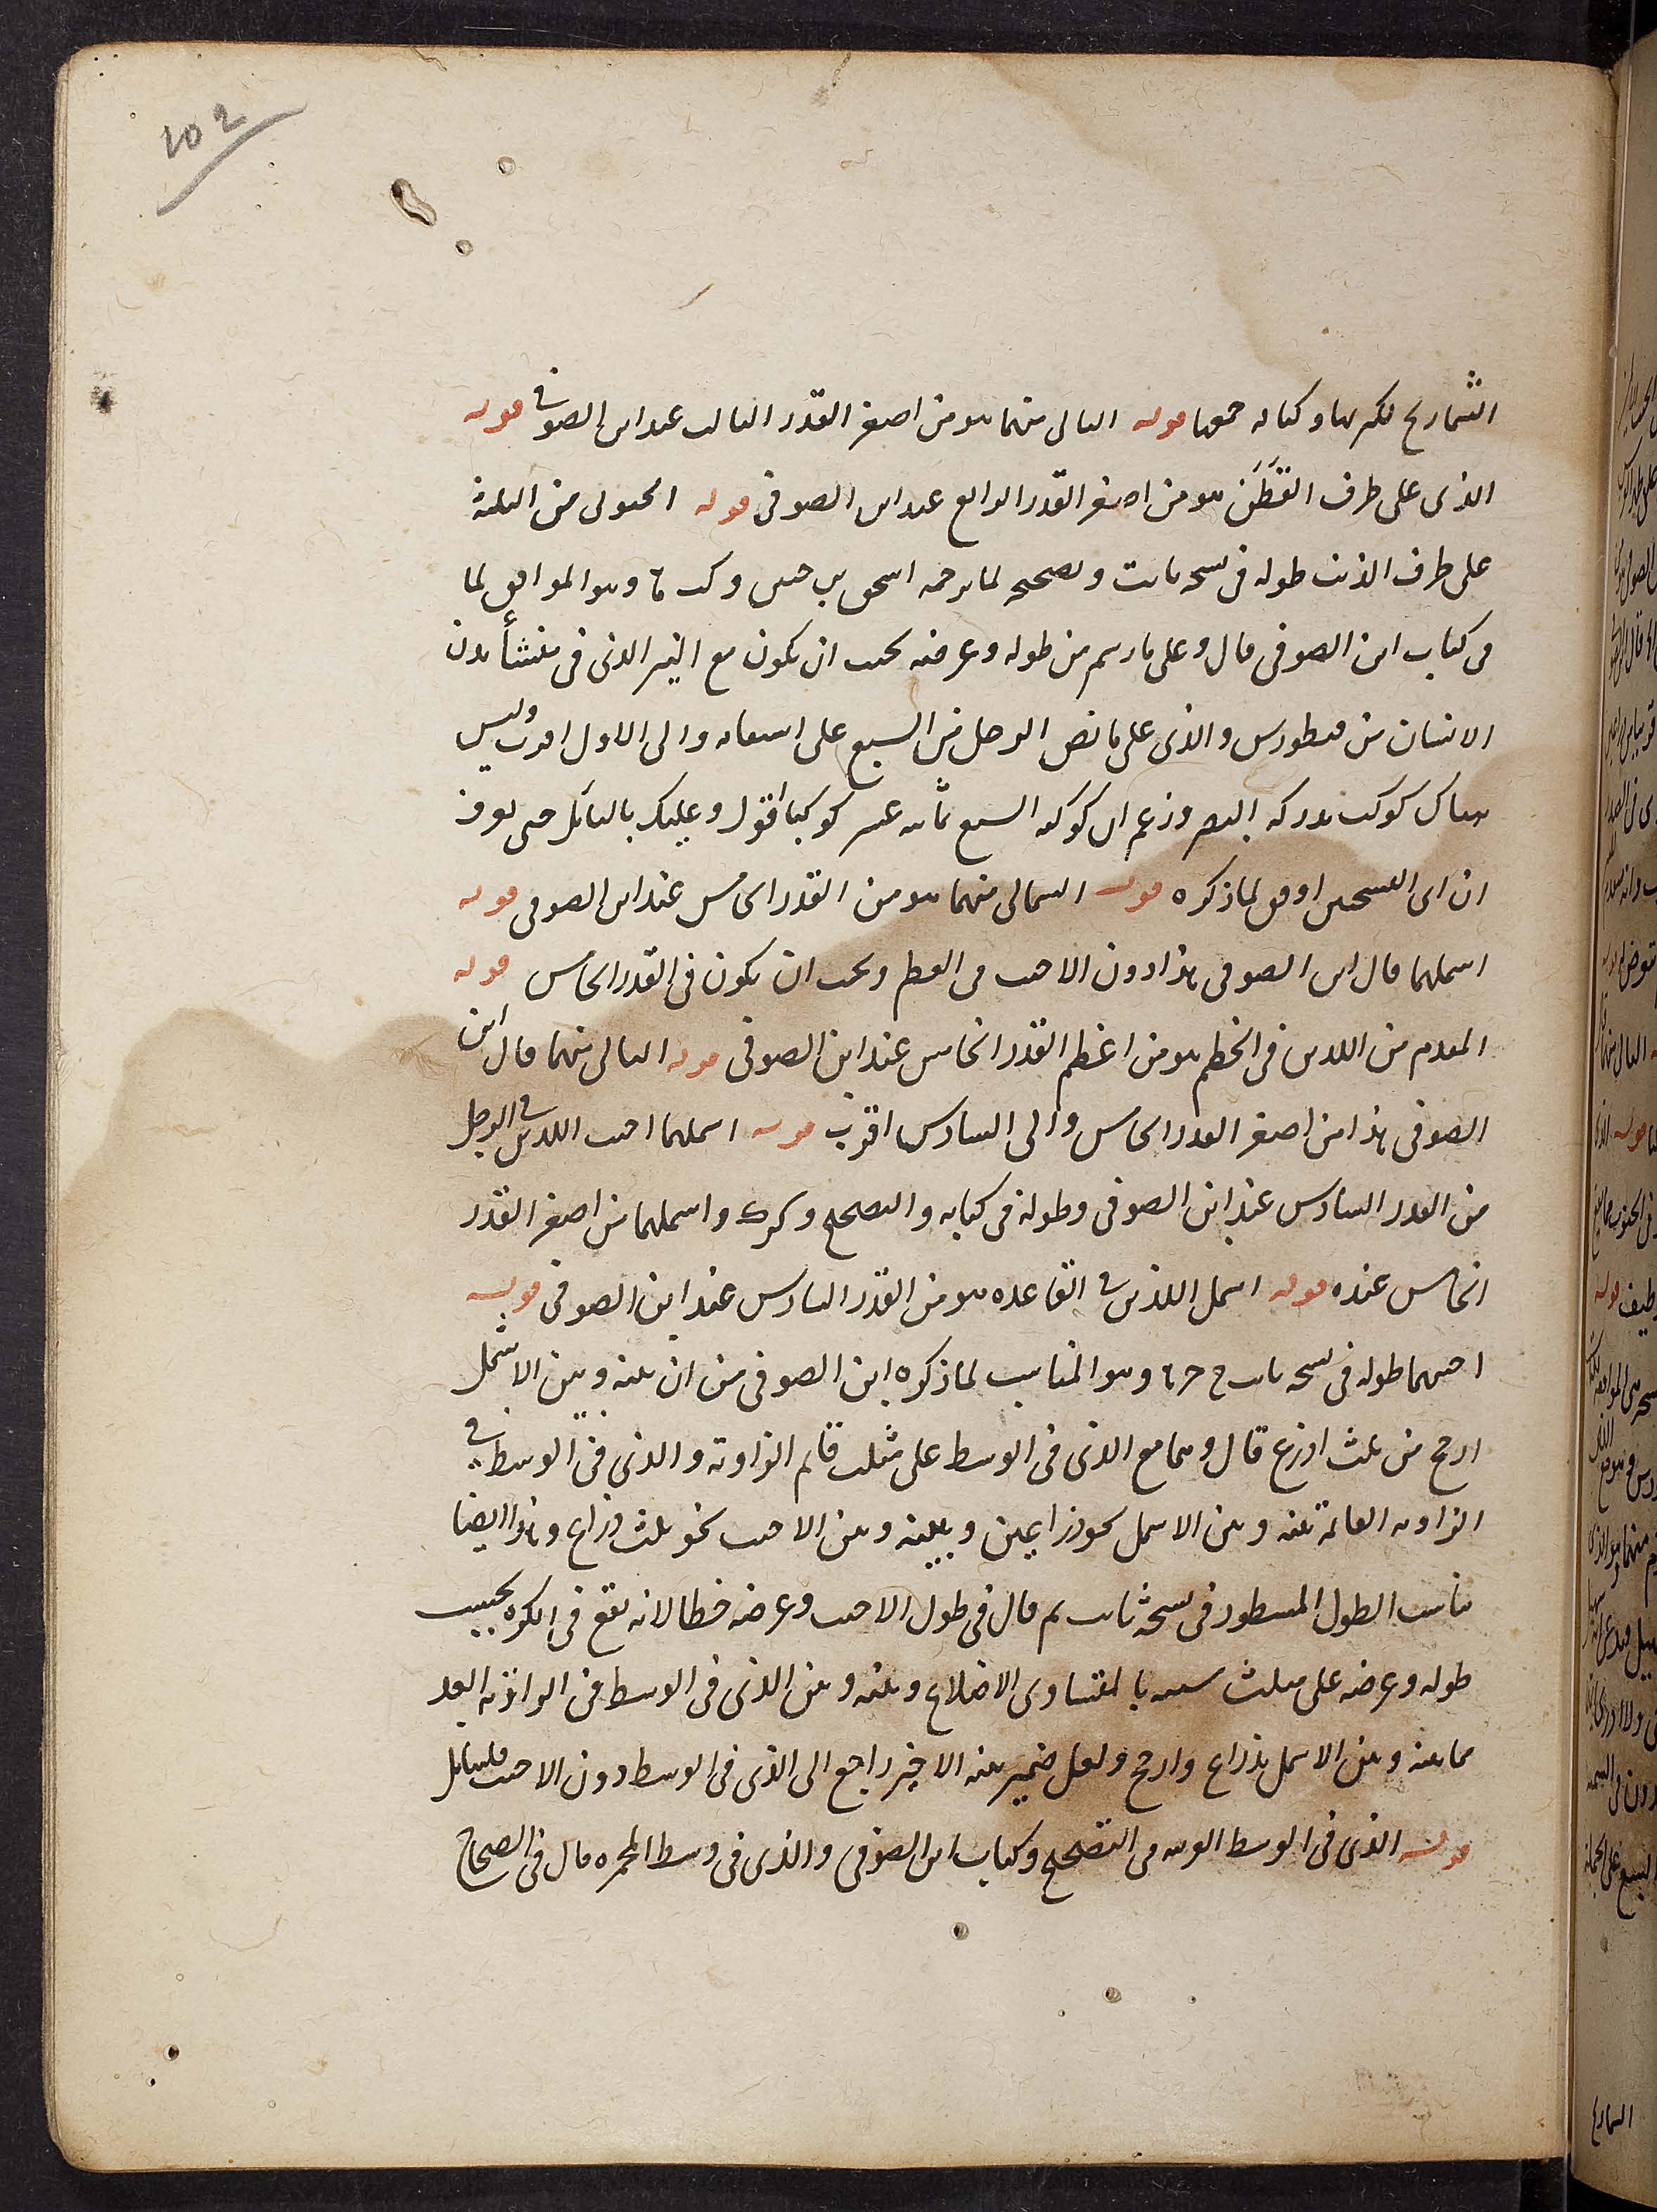 102
الشماريخ لكثرتها وكثافة جمعها قوله التالى منهما هو من اصغر القدر الثالث عند ابن الصوفى قوله
الذى على طرف القَطَن هو من اصغر القدر الرابع عند ابن الصوفى قوله الجنوبى من الثلثة
على طرف الذنب طوله فى نسخه ثابت وتصحيحه لما ترجمه اسحق بن حنين و كب ٥ وهو الموافق لما
فى كتاب ابن الصوفى قال وعلى ما رسم من طوله وعرضه يجب ان يكون مع النير الذى فى منشأ بدن
الانسان من قنطورس والذى على مابض الرجل من السبع على استقامه والى الاول اقرب وليس
هناك كوكب يدركه البصر وزعم ان كوكبة السبع ثمانيه عشر كوكبا اقول وعليك بالتأمل حتى تعرف
ان اى النسختين اوفق لما ذكره قوله الشمالى منهما هو من القدر الخامس عند ابن الصوفى قوله
اشملهما قال ابن الصوفى هذا دون الاجنب فى العظم ويجب ان يكون فى القدر الخامس قوله
المقدم من اللذين فى الخطم هو من اعظم القدر الخامس عند ابن الصوفى قوله التالى منهما قال ابن
الصوفى هذا من اصغر القدر الخامس والى السادس اقرب قوله اشملهما اجنب اللذين فى الرجل
من القدر السادس عند ابن الصوفى وطوله فى كتابه والتصحيح و كرك واشملهما من اصغر القدر
الخامس عنده قوله اشمل اللذين فى القاعده هو من القدر السادس عند ابن الصوفى قوله
اجنبهما طوله فى نسخه ثابت ح حر ٥ وهو المناسب لما ذكره ابن الصوفى من ان بينه وبين الاشمل
ارجح من ثلث اذرع قال وهما مع الذى فى الوسط على مثلث قائم الزاويه والذى فى الوسط فى
الزاويه القائمة بينه وبين الاشمل نحو ذراعين وبينه وبين الاجنب نحو ثلث ذراع وهذا ايضا
يناسب الطول المسطور فى نسخة ثابت ثم قال فى طول الاجنب وعرضه خطا لانه يقع فى الكره بحسب
طوله وعرضه على مثلث شبيه بالمتساوى الاضلاع وبينه وبين الذى فى الوسط فى الزاويه ابعد
مما بينه وبين الاشمل بذراع وارجح ولعل ضمير بينه الاخير راجع الى الذى فى الوسط دون الاجنب فليتامل
قوله الذى فى الوسط فى التصحيح وكتاب ابن الصوفى والذى فى وسط المجمره قال فى الصحاح